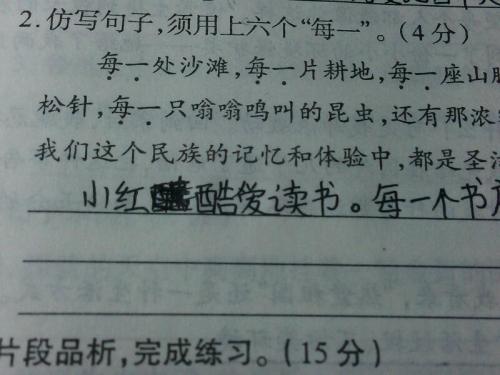 2.仿写句子,须用上六个“每一”。(4分)
每一处沙滩,每一片耕地,每一座山
松针,每一只嗡嗡鸣叫的昆虫,还有那浓
我们这个民族的记忆和体验中,都是圣
小红酷爱读书。每一个书
片段品析,完成练习。(15分)